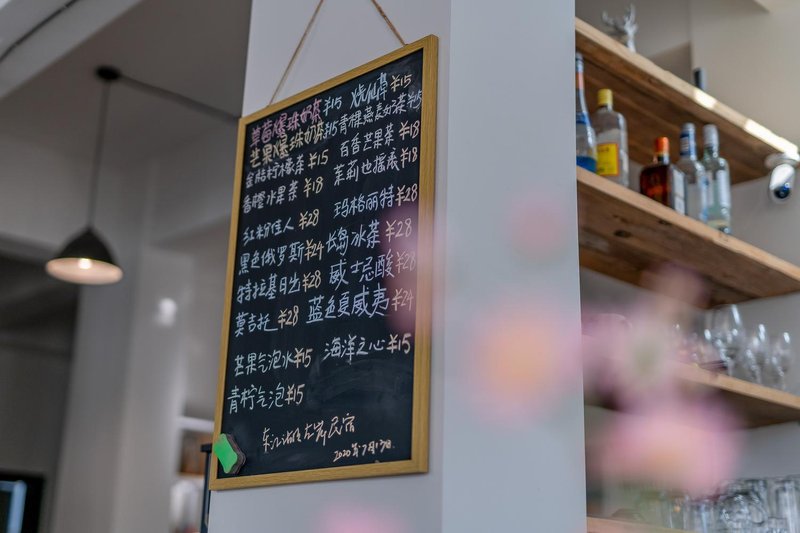 草莓爆珠奶茶¥15 烧仙草¥15
芒果爆珠奶茶¥15 青稞燕麦奶茶¥15
金桔柠檬茶¥15 百香芒果茶¥18
香橙水果茶¥18 茉莉也摇晨¥18
红粉佳人¥28 玛格丽特¥28
黑色俄罗斯¥24 长岛冰茶¥28
特拉基日出¥28 威士忌酸¥28
莫吉托¥28 蓝色夏威夷¥24
芒果气泡水¥15 海洋之心¥15
青柠气泡¥15
东江湖 左岸民宿
2020年7月17日